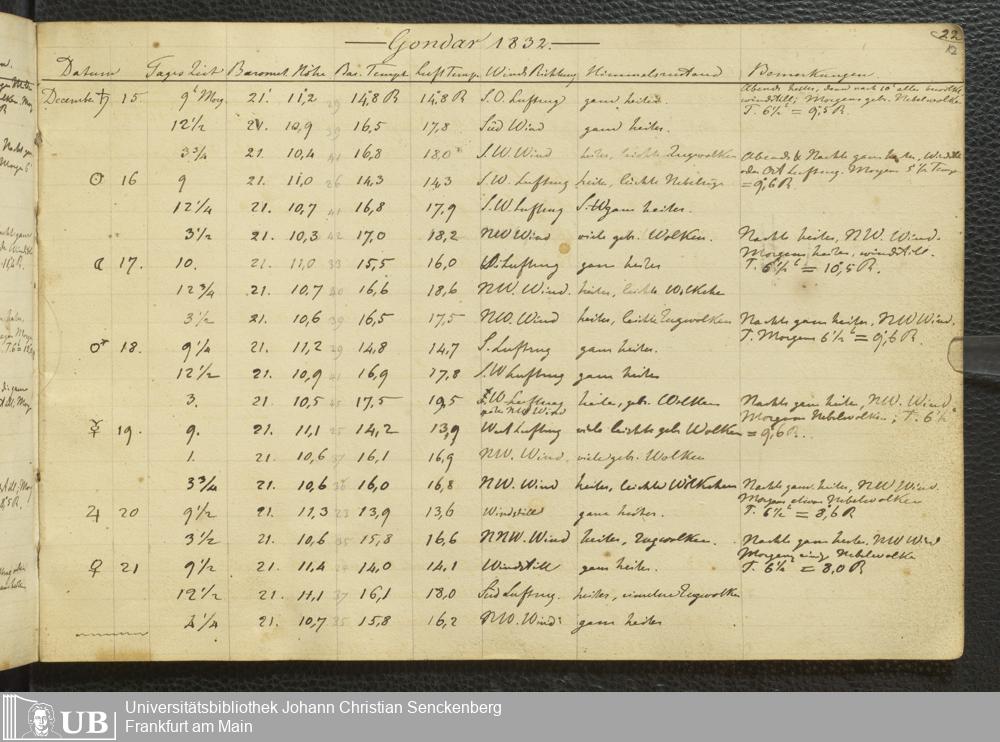 Gondar 1832.
22
Datum Tages Zeit Baromet. Höhe Bar. Tempt. Luft Temp. Winds Richtung Himmelszustand Bemerkungen.
December ♄ 15. 9 Morg. 21. 11,2 29 14,8 R 14,8 R S.O. Luftzug ganz heiter. Abends heiter, dann nach 10
windstill; Morgens geb. Nebelwolken
T. 6½ = 9,5 R.
12½ 21. 10,9 39 16,5 17,8 Süd Wind ganz heiter.
3¾ 21. 10,4 41 16,8 18,0 S.W. Wind heiter, leichte Zugwolken Abends & Nachts ganz heiter,
oder Ost Luftzug. Morgens 5½ Temp
= 9,6 R.
☉ 16 9 21. 11,0 26 14,3 14,3 S.W. Luftzug heiter, leichte
12¼ 21. 10,7 41 16,8 17,9 S.W Luftzug ganz heiter.
3½ 21. 10,3 42 17,0 18,2 NW Wind viele geb. Wolken. Nachts heiter, NW. Wind.
Morgens heiter, windstill.
T. 6½ = 10,5 R.
☾ 17. 10. 21. 11,0 33 15,5 16,0 Luftzug ganz heiter
12¾ 21. 10,7 40 16,6 18,6 NW. Wind. heiter, leichte Wölkche
3½ 21. 10,6 39 16,5 17,5 NW. Wind heiter, leichte Zugwolken Nachts ganz heiter, NW Wind.
T. Morgens 6½ = 9,6 R.
♂ 18. 9¼ 21. 11,2 29 14,8 14,7 S. Luftzug ganz heiter.
12½ 21. 10,9 41 16,9 17,8 S.W Luftzug ganz heiter
3. 21. 10,5 45 17,5 19,5 S.W. Luftzug heiter, geb. Wolken Nachts ganz heiter, NW. Wind
NW Wind
Morgens Nebelwolken; T. 6½
= 9,6 R.
☿ 19. 9. 21. 11,1 25 14,2 13,9 West Luftzug viele leichte geb. Wolken
1. 21. 10,6 37 16,1 16,9 NW. Wind. viele geb. Wolken
3¾ 21. 10,6 36 16,0 16,8 NW. Wind heiter, leichte Wölkchen Nachts ganz heiter, NW Wind.
Morgens etwas Nebelwolken
T. 6½ = 8,6 R
♃ 20 9½ 21. 11,3 23 13,9 13,6 Windstill ganz heiter.
3½ 21. 10,6 35 15,8 16,6 NNW. Wind heiter, Zugwolken. Nachts ganz heiter. NW Wind
Morgens einige Nebelwolke
T. 6½ = 8,0 R.
♀ 21 9½ 21. 11,4 14,0 14,1 Windstill ganz heiter.
12½ 21. 11,1 37 16,1 18,0 Süd Luftzug. heiter, einzelne Zugwolke
4¼ 21. 10,7 35 15,8 16,2 NW. Wind ganz heiter
UB
Universitätsbibliothek Johann Christian Senckenberg
Frankfurt am Main